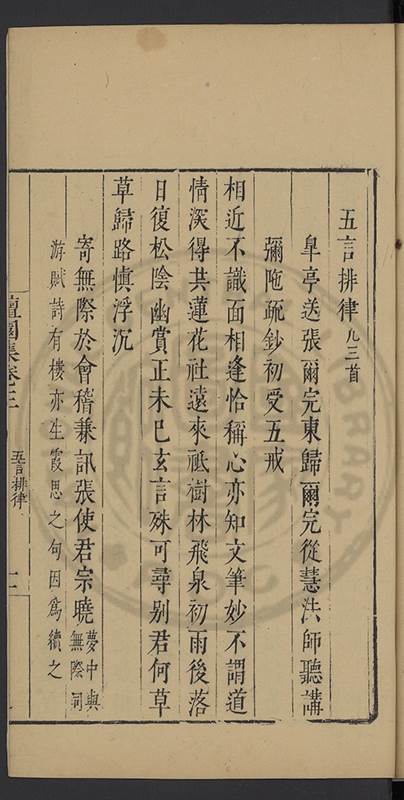 五言排律凡三首
皐亭送張爾完東歸爾完從慧法師聽講
彌陁疏鈔初受五戒
相近不識面相逢恰稱心亦知文筆妙不謂道
情深得共蓮花社遠來祗樹林飛泉初雨後落
日復松陰幽賞正未已玄言殊可尋别君何草
草歸路愼浮沉
寄無際於會稽兼訊張使君宗曉夢中與無際同
游賦詩有樓亦生霞思之句因爲續之
檀園集卷三
五言排律